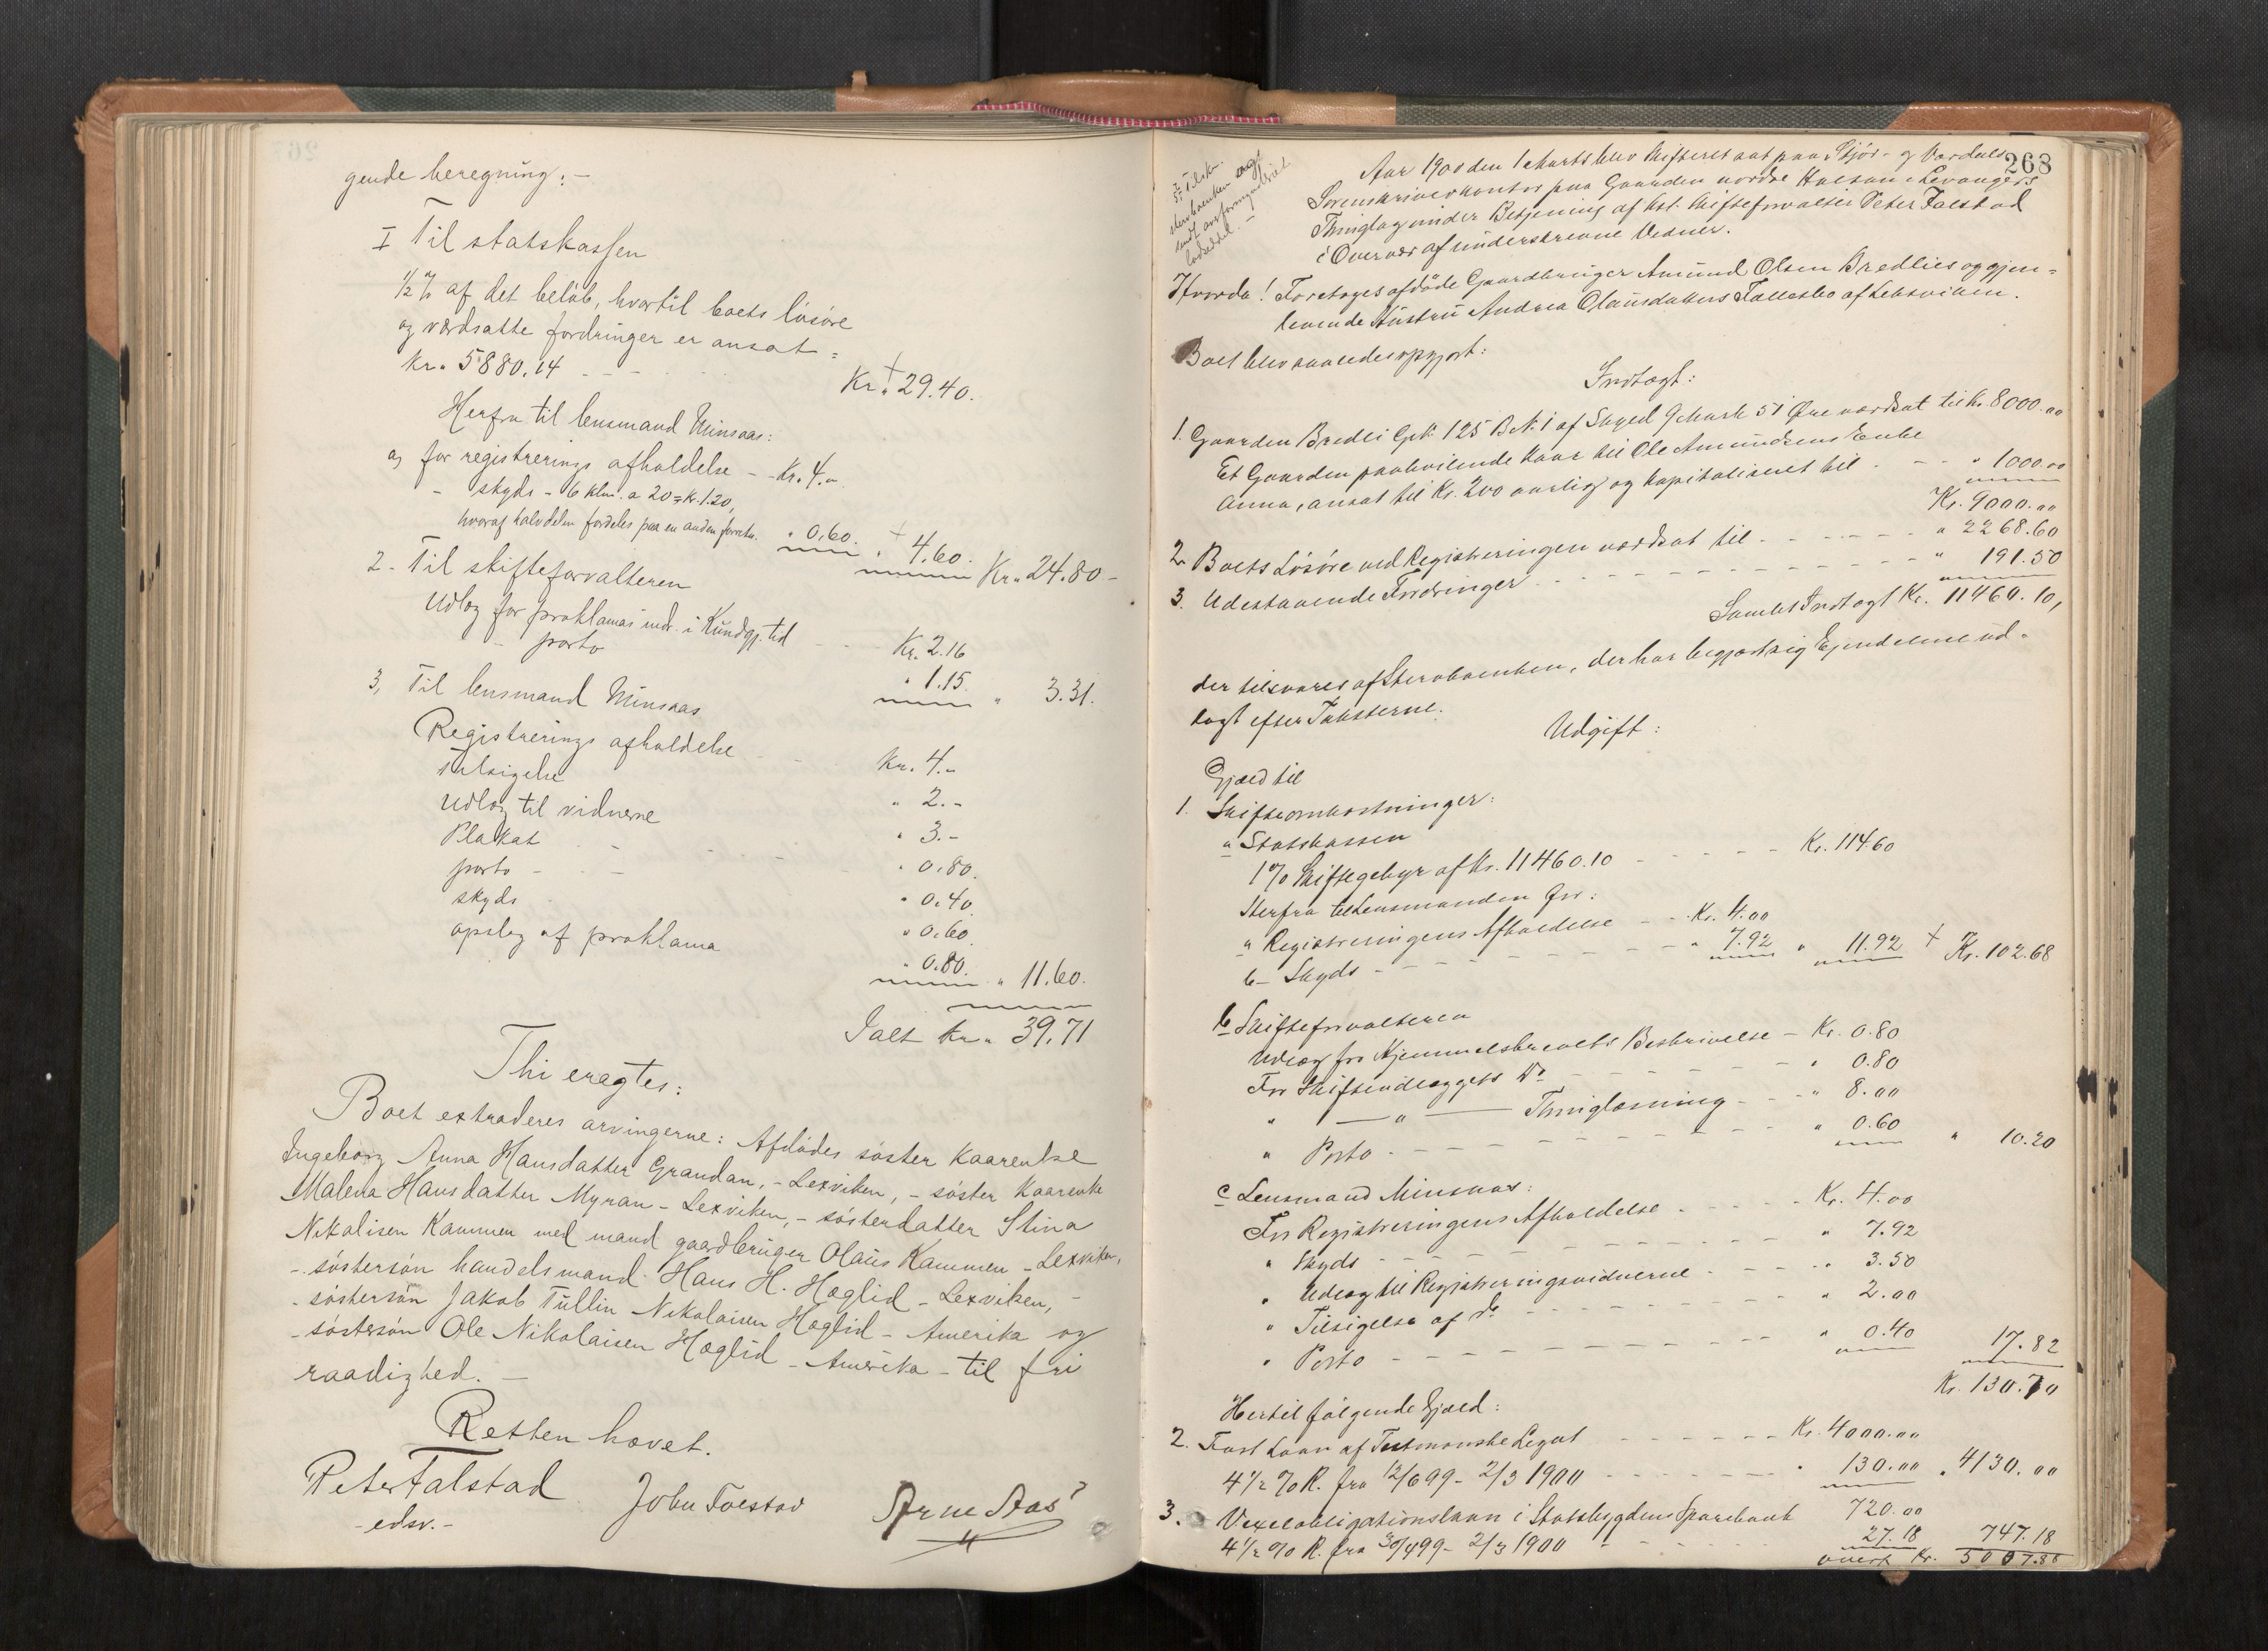 gende beregning: —
I Til statskassen
1/2 % af det beløb, hvortil boets løsøre
og værdsatte fordringer er ansat =
kr. 5880.14 - - - Kr. 29.40.
Herfra til lensmand Minsaas:
a, for registrerings afholdelse - Kr. 4.-
- skyds - 6 klm. a 20 = Kr. 1.20,
hvoraf halvdelen fordeles paa en anden forretn. " 0.60. " 4.60. Kr. 24.80 -
2. Til skifteforvalteren
Udlæg for proklamas indr. i Kundgj. tid - - Kr. 2.16
- porto " 1.15. " 3.31.
3, Til lensmand Minsaas
Registrerings afholdelse - - Kr. 4.-
tilsigelse " 2.-
Udlæg til vidnerne " 3.-
Plakat - - - " 0.80.
porto - - " 0.40.
skyds " 0.60.
opslag af proklama " 0.80. " 11.60.
Ialt kr. 39.71
Thi eragtes:
Boet extraderes arvingerne: Afdødes søster Kaarentse
Ingeborg Anna Hansdatter Grandan, - Lexviken, - søster Kaarenke
Malena Hansdatter Myran - Lexviken, - søsterdatter Stina
Nikalisen Kammen med mand gaardbruger Olaus Kammen - Lexviken,
- søstersøn handelsmand Hans H. Hæglid - Lexviken, -
- søstersøn Jakob Tullin Nikolaisen Hæglid - Amerika og
- søstersøn Ole Nikolaisen Hæglid - Amerika - til fri
raadighed. —
Retten hævet.
Peter Falstad John Foestad Arne Aas
- edsv. -
268
Aar 1900 den 1 Marts blev Skifteret sat paa Stjør- og Værdals
Sorenskriverkontor paa Gaarden nordre Halsan i Levangers
Thinglag under Betjening af kst. Skifteforvalter Peter Falstad
i Overvær af underskrevne Vidner.
Hvorda! Foretoges afdøde Gaardbruger Amund Olsen Bredlies og gjen=
levende Hustru Andrea Olausdatters Fællesbo af Leksviken.
Boet blev saaledes opgjort:
Indtægt:
1. Gaarden Bredli Gr. 125 B.N. 1 af Skyld 9 Mark 51 Øre værdsat til Kr. 8000.00
Et Gaarden paahvilende Kaar til Ole Amundsens Enke
Anna, ansat til Kr. 200 aarlig og kapitaliseret til - - - " 1000.00
Kr. 9000.00
2. Boets Løsøre ved Registreringen værdsat til - - - - " 2268.60
3. Udestaaende Fordringer - - - - - " 191.50
Samlet Indtægt Kr. 11460.10,
der tilsvares af Stervboenken, der har begjært sig Ejendelene ud-
lagt efter Taksterne.
Udgift:
Gjæld til
1. Skifteomkostninger:
a Statskassen
1 % Skiftegebyr af Kr. 11460.10 - - - - Kr. 114.60
Herfra til Lensmanden for:
a Registreringens Afholdelse - - Kr. 4.00
b - Skyds - - - - - " 7.92 " 11.92 Kr. 102.68
b Skifteforvalteren
Udlæg for Hjemmelsbrevets Beskrivelse - Kr. 0.80
For Skifteudlæggets Do - - - - " 0.80
" - " - Thinglæsning - - - " 8.00
" Porto - - - - - " 0.60 " 10.20
c Lensmand Minsaas:
For Registreringens Afholdelse - - - Kr. 4.00
" Skyds - - - - - " 7.92
" Udlæg til Registreringsvidnerne - - - " 3.50
" Tilsigelse af do - - - - " 2.00
" Porto - - - - - " 0.40 17.82
Kr. 130.70
Hertil følgende Gjæld:
2. Fast Laan af Legat - - - - Kr. 4000.00
4 1/2 % R. fra 12/6 99 - 2/3 1900 - - - " 130.00 " 4130.00
3. Vexelobligationslaan i Stadsbygdens Sparebank 720.00
4 1/2 % R. fra 30/4 99 - 2/3 1900 - - - 27.18 747.18
overf. Kr. 5007.88